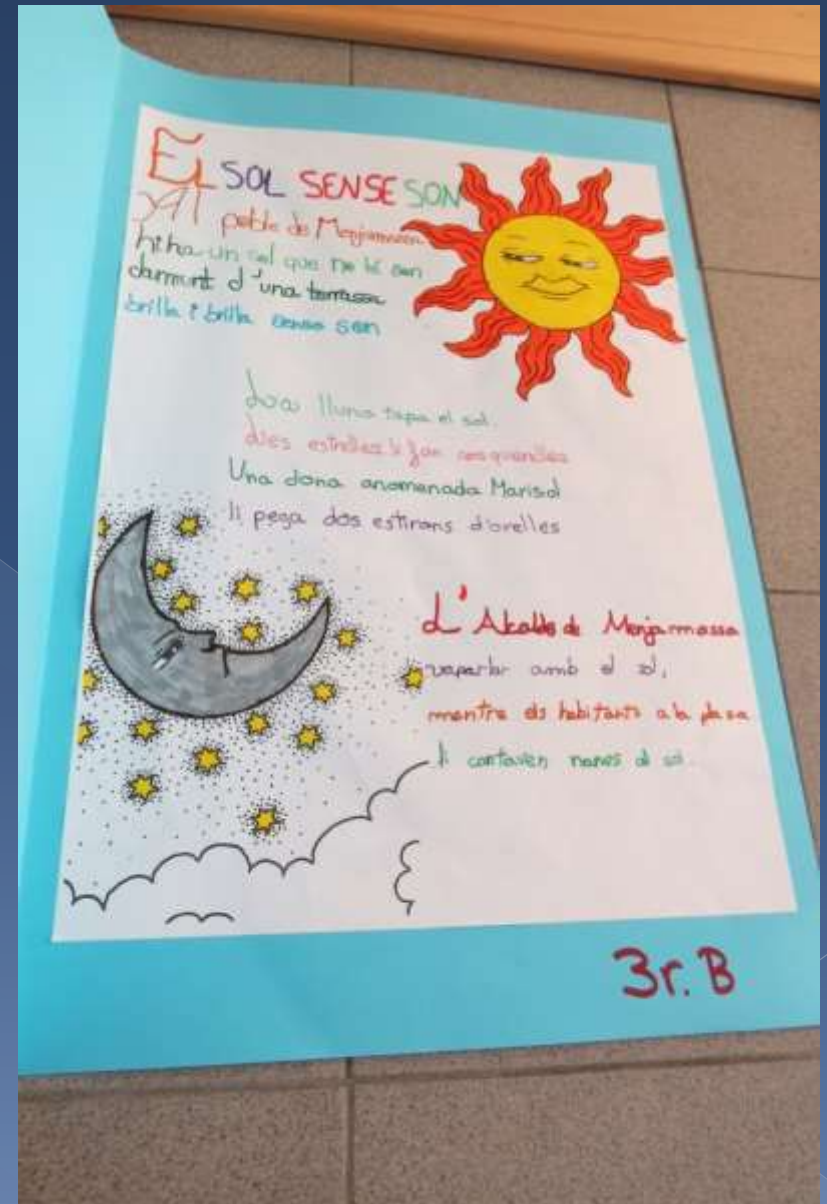 EL SOL SENSE SON
Al poble de Menjamassa
hi ha un sol que no té son
damunt d'una terrassa
brilla i brilla sense son
La lluna tapa el sol.
Les estrelles li fan pesquanelles
Una dona anomenada Marisol
li pega dos estirons d'orelles
L'Alcalde de Menjamassa
va parlar amb el sol,
mentre els habitants a la plasa
li cantaven nanes al sol.
3r. B